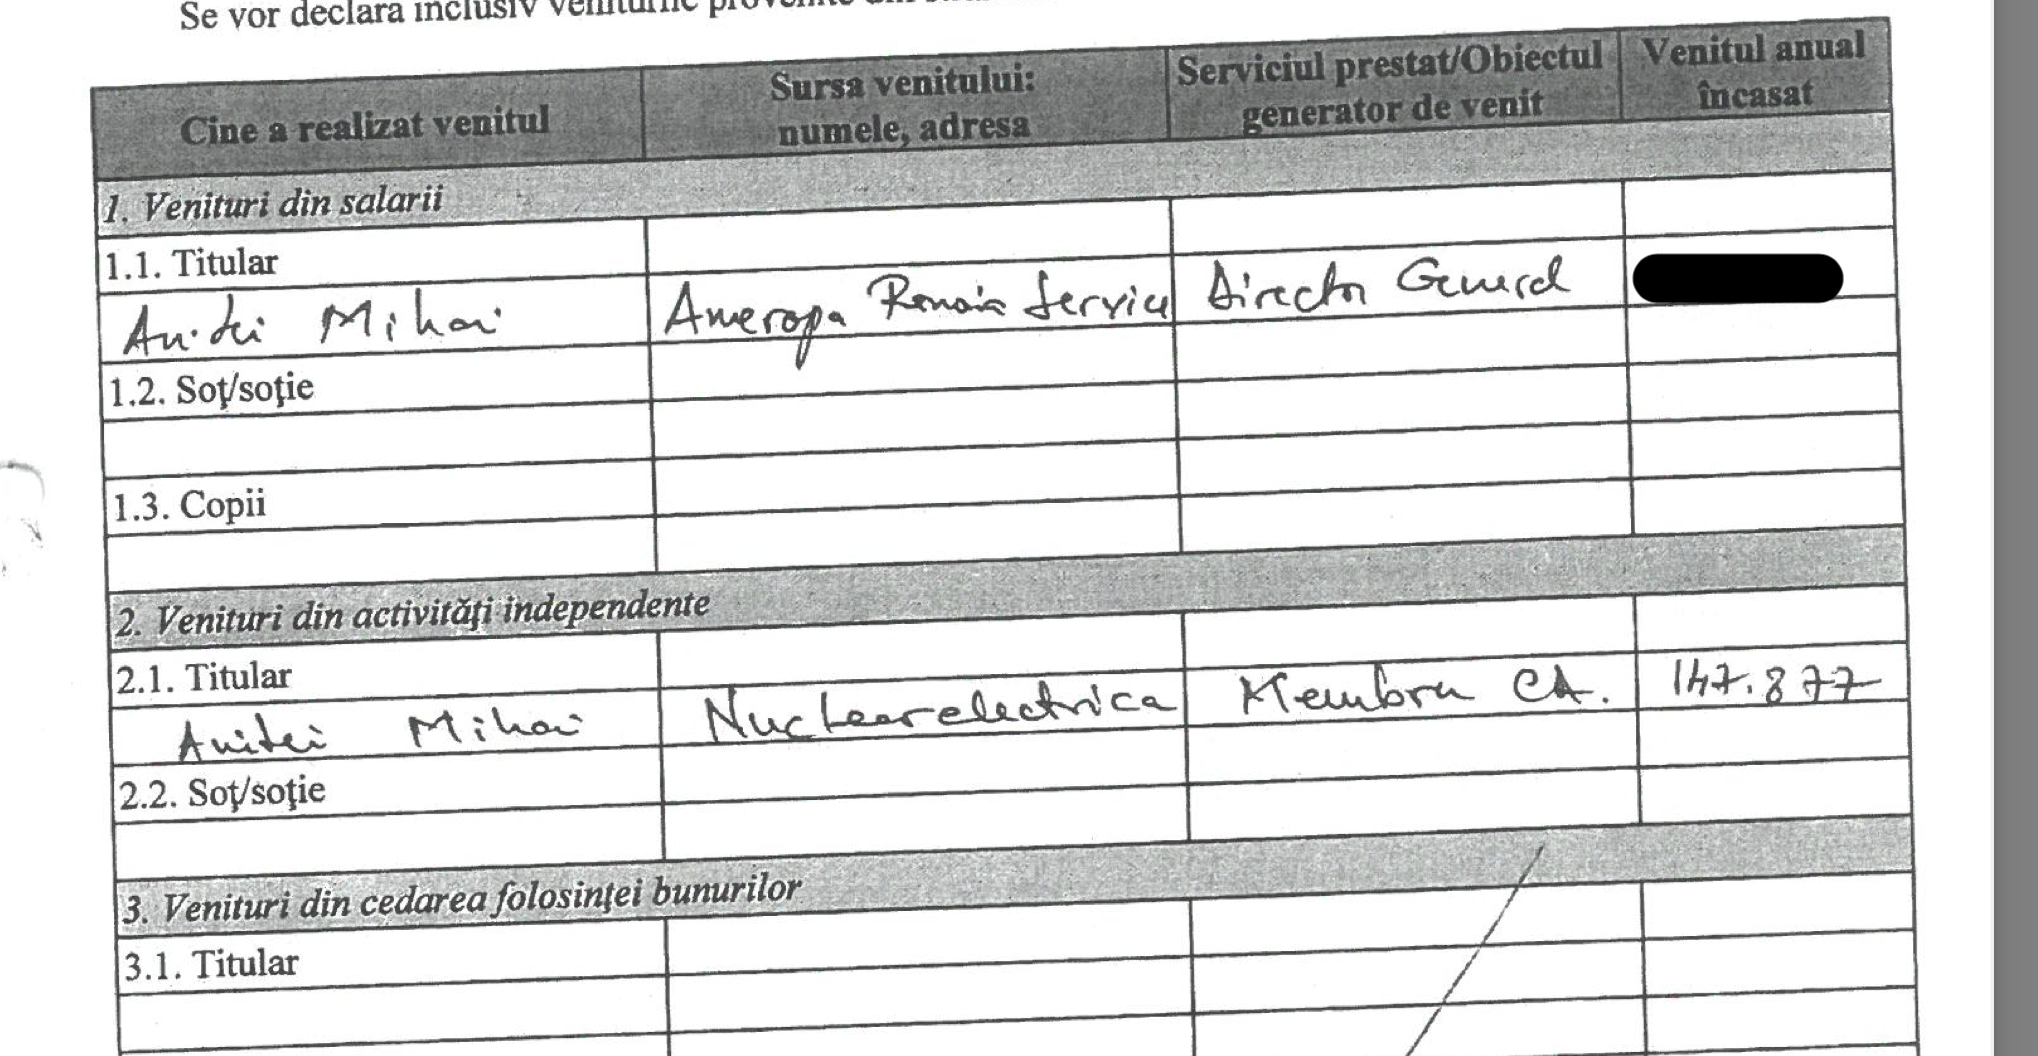 Se vor declara inclusiv veniturile provenite din
Cine a realizat venitul
Sursa venitului:
numele, adresa
Serviciul prestat/Obiectul
generator de venit
Venitul anual
încasat
1. Venituri din salarii
1.1. Titular
Anitei Mihai Ameropa Romania Service Director General
1.2. Soţ/soţie
1.3. Copii
2. Venituri din activităţi independente
2.1. Titular
Anitei Mihai Nuclearelectrica Membru CA. 147.877
2.2. Soţ/soţie
3. Venituri din cedarea folosinţei bunurilor
3.1. Titular